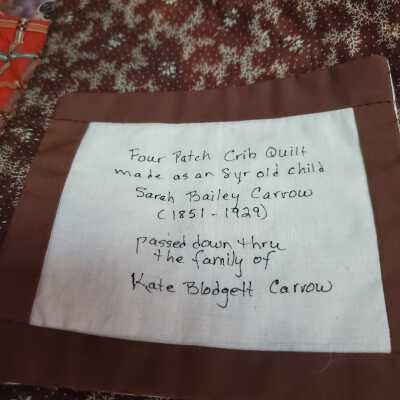 Four Patch Crib Quilt
made as an 8yr old child
Sarah Bailey Carrow
(1851 - 1929)
passed down thru
the family of
Kate Blodgett Carrow